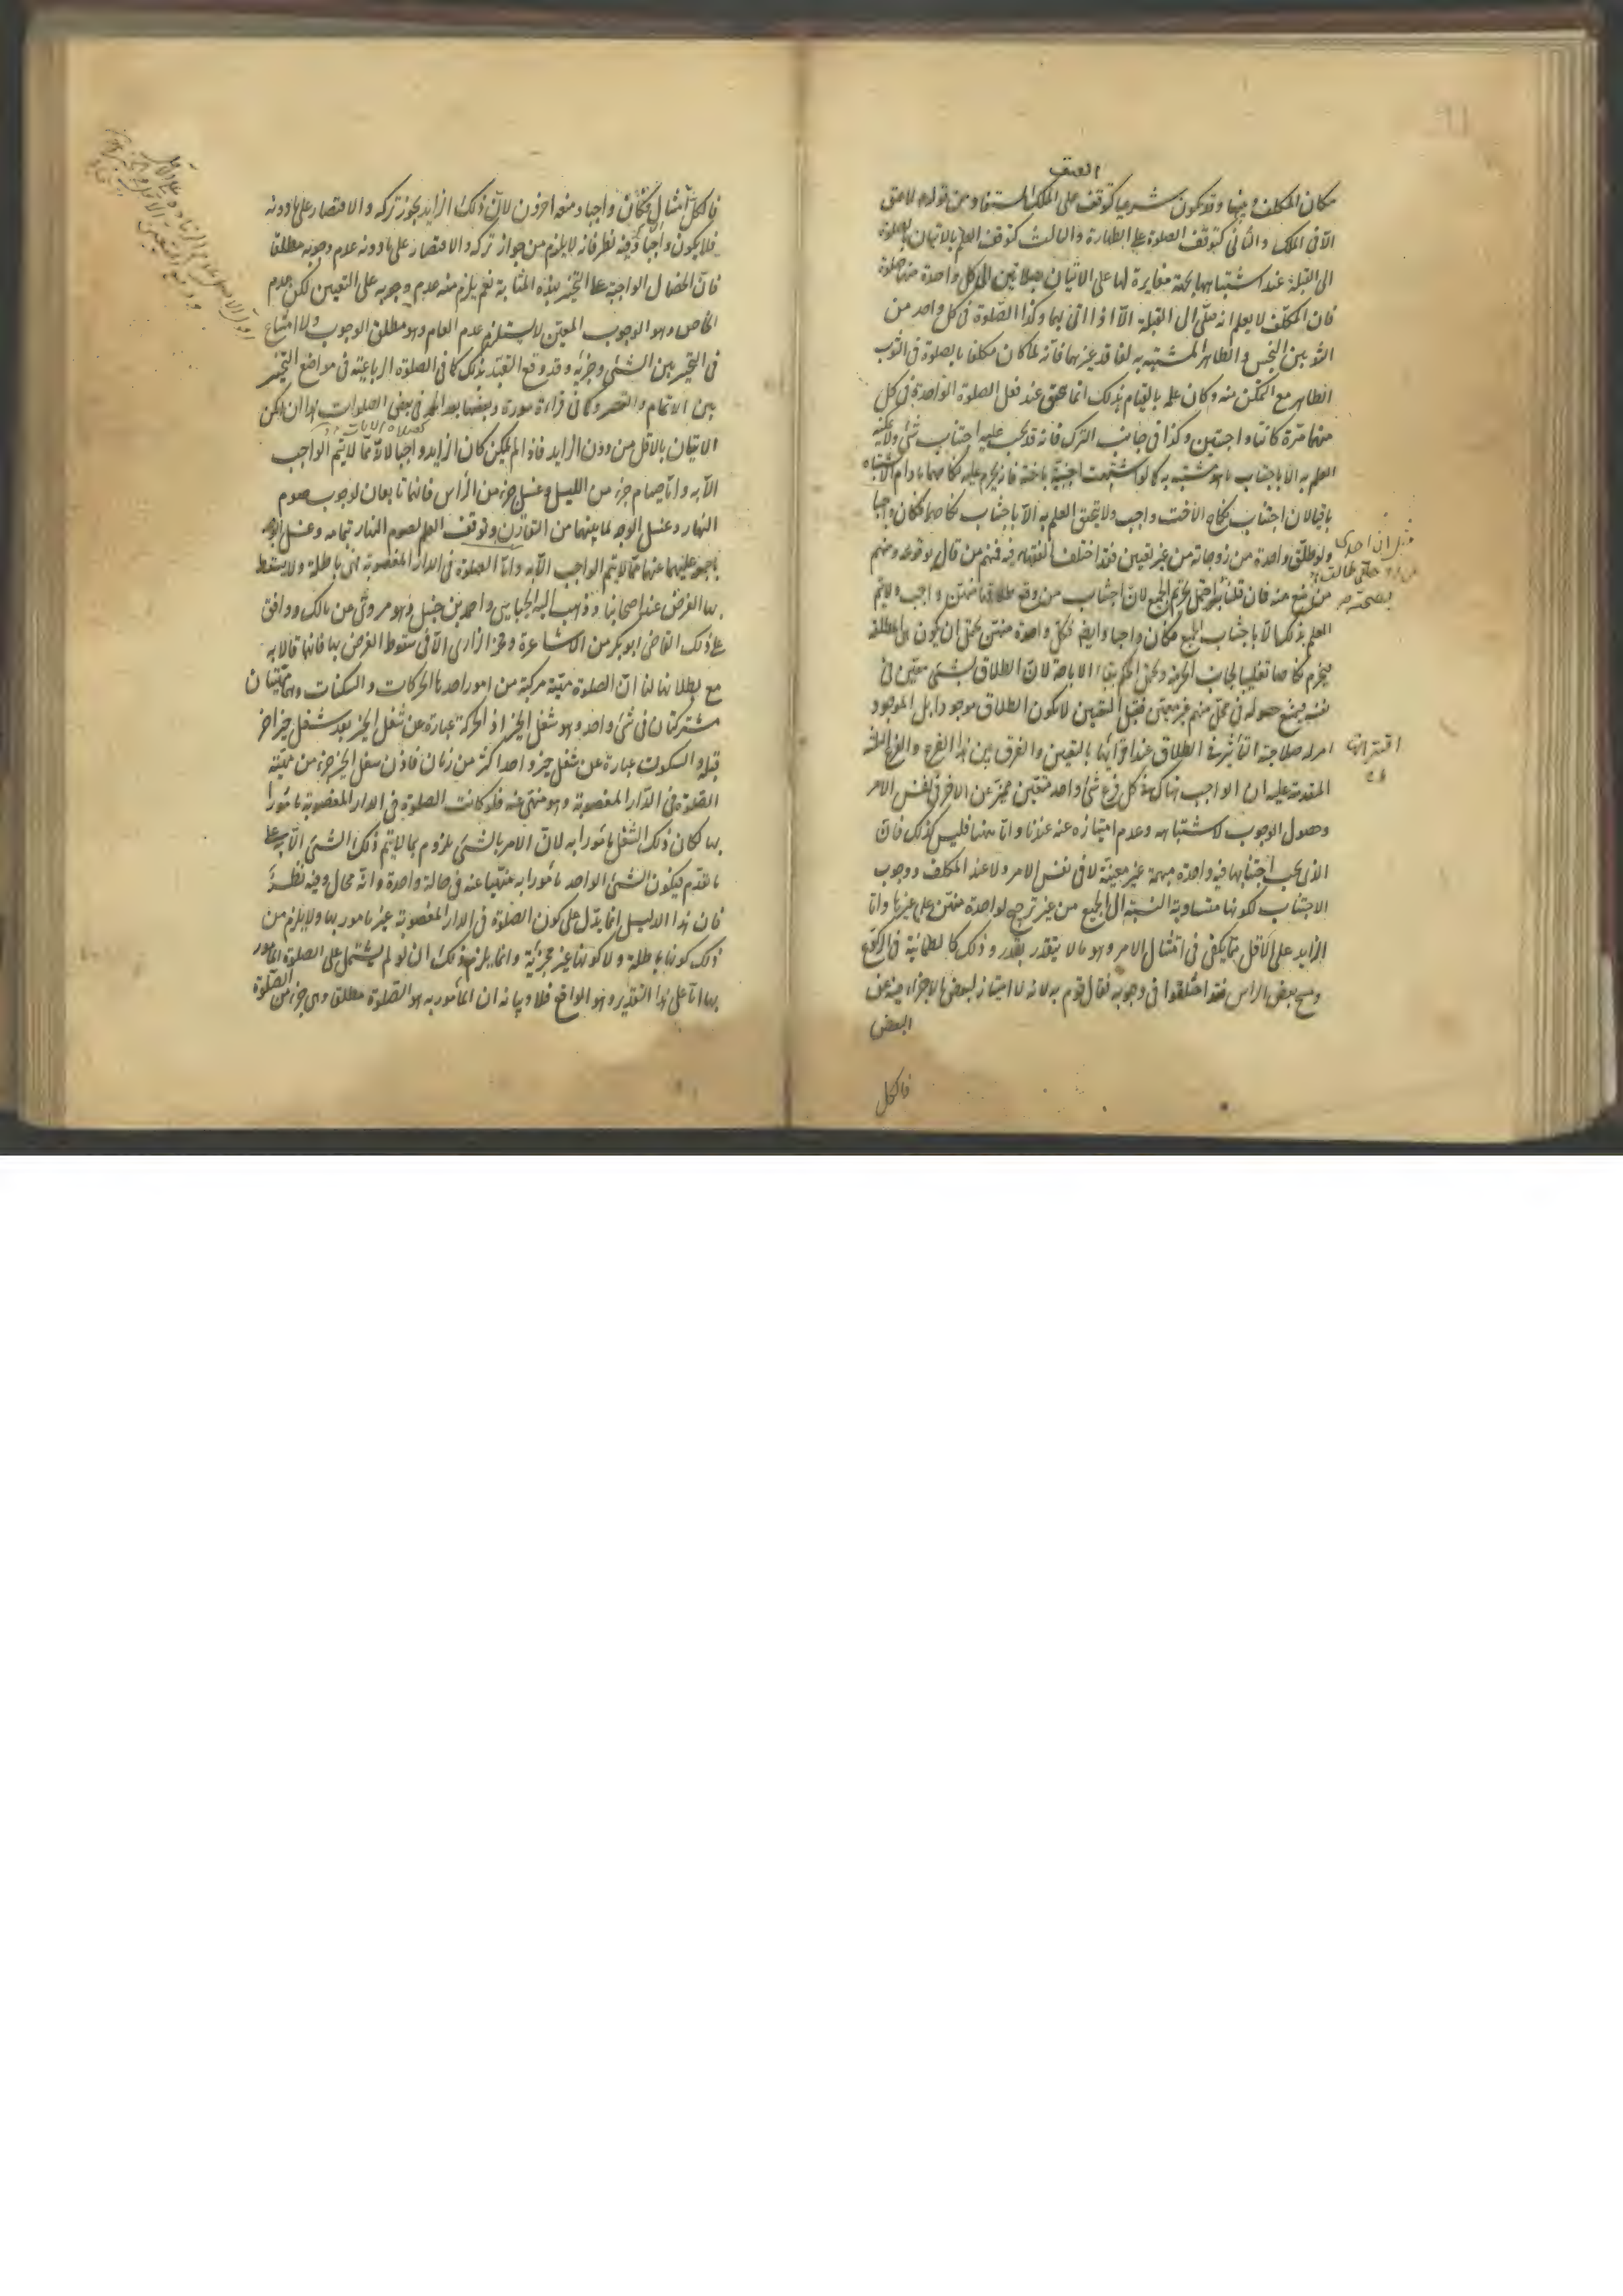 العتق
مكان المكلف فيها وقد يكون شرعيا كتوقف على الملك المستفاد من قولهم لا عتق
الا في الملك والثاني كتوقف الصلوة على الطهارة والثالث كتوقف العلم بالاتيان بالصلوة
الى القبلة عند اشتباهها بجهة مغايرة لها على الاتيان بصلاتين الى كل واحدة منهما صلوة
فان المكلف لا يعلم انه صلى الى القبلة الا اذا اتى بهما وكذا الصلوة في كل واحد من
الثوبين النجس والطاهر المشتبه به لفاقد غيرهما فانه لما كان مكلفا بالصلوة في الثوب
الطاهر مع التمكن منه وكان علمه بالقيام بذلك انما يتحقق عند فعل الصلوة الواحدة في كل
منهما مرة كانتا واجبتين وكذا في جانب الترك فانه قد يجب عليه اجتناب شئ ولا يمكنه
العلم به الا باجتناب ما هو مشتبه به كما لو اشتبهت اجنبية باخته فانه يحرم عليه نكاحهما ما دام الاشتباه
باقيا لان اجتناب نكاح الاخت واجب ولا يتحقق العلم به الا باجتناب نكاحهما فكان واجبا
ولو طلق واحدة من زوجاته من غير تعيين فقد اختلف الفقهاء فيه فمنهم من قال بوقوعه ومنهم
من منع منه فان قلنا به احتمل تحريم الجميع لان اجتناب من وقع طلاقها منهن واجب ولا يتم
العلم بذلك الا باجتناب الجميع فكان واجبا وايضا فكل واحدة منهن يحتمل ان يكون هي المطلقة
فيحرم نكاحها تغليبا لجانب الحرمة ويحتمل الحكم ببقاء الاباحة لان الطلاق شئ معين في
نفسه يمتنع حصوله في محل مبهم غير معين فقبل التعيين لا يكون الطلاق موجودا بل الموجود
امر له صلاحية التأثير في الطلاق عند اقترانها بالتعيين والفرق بين هذا الفرع والفروع الثلثة
المقدمة عليه ان الواجب هناك في كل فرع شئ واحد متعين مميز عن الاخر في نفس الامر
وحصول الوجوب لاشتباهه وعدم امتيازه عنه عندنا واما ههنا فليس كذلك فان
الذي يجب اجتنابها فيه واحدة مبهمة غير معينة لا في نفس الامر ولا عند المكلف ووجوب
الاجتناب لكونها متساوية النسبة الى الجميع من غير ترجيح لواحدة منهن على غيرها واما
الزايد على الاقل مما يكفى في امتثال الامر وهو ما لا يتقدر بقدر وذلك كالطمانينة في الركوع
ومسح بعض الراس فقد اختلفوا في وجوبه فقال قوم به لانه لا امتياز لبعض الاجزاء فيه عن
البعض
فالكل
اقترانه
فالكل امتثال فكان واجبا ومنعه اخرون لان ذلك الزايد يجوز تركه والاقتصار على ما دونه
فلا يكون واجبا وفيه نظر فانه لا يلزم من جواز تركه والاقتصار على ما دونه عدم وجوبه مطلقا
فان الخصال الواجبة على التخيير بهذه المثابة نعم يلزم منه عدم وجوبه على التعيين لكن عدم
الخاص وهو الوجوب المعين لا يستلزم عدم العام وهو مطلق الوجوب ولا امتناع
في التخيير بين الشئ وجزئه وقد وقع التعبد بذلك كما في الصلوة الرباعية في مواضع التخيير
بين الاتمام والقصر وكما في قراءة سورة وبعضها بعد الحمد في بعض الصلوات هذا ان امكن
كصلاة الايات
الاتيان بالاقل من دون الزايد فاذا لم يمكن كان الزايد واجبا لانه مما لا يتم الواجب
الا به واما صيام جزء من الليل وغسل جزء من الرأس فانهما تابعان لوجوب صوم
النهار وغسل الوجه لما بينهما من التقارن وتوقف العلم بصوم النهار بتمامه وغسل الوجه
باجمعه عليهما عنها مما لا يتم الواجب الا به واما الصلوة في الدار المغصوبة فهى باطلة ولا يسقط
بها الفرض عند اصحابنا وذهب اليه الجبائيين واحمد بن حنبل وهو مروى عن مالك ووافق
على ذلك القاضى ابو بكر من الاشاعرة وفخر الرازى الا في سقوط الفرض بها فانهما قالا به
مع بطلانها لنا ان الصلوة مهية مركبة من امور احدها الحركات والسكنات وهما مهيتان
مشتركتان في شئ واحد وهو شغل الحيز اذ الحركة عبارة عن شغل الحيز بعد شغل حيز اخر
قبله والسكون عبارة عن شغل حيز واحد اكثر من زمان فاذن شغل الحيز جزء من مهية
الصلوة في الدار المغصوبة وهو منهى عنه فلو كانت الصلوة في الدار المغصوبة مأمورا
بها لكان ذلك الشغل مأمورا به لان الامر بالشئ ملزوم بما لا يتم ذلك الشئ الا به على
ما تقدم فيكون الشئ الواحد مأمورا به منهيا عنه في حالة واحدة وانه محال وفيه نظر
فان هذا الدليل انما يدل على كون الصلوة في الدار المغصوبة غير مامور بها ولا يلزم من
ذلك كونها باطلة ولا كونها غير مجزئة وانما يلزم ذلك ان لو لم يشتمل على الصلوة المأمور
بها اما على هذا التقدير وهو الواقع فلا وبيانه ان المأمور به هو الصلوة مطلقا وهى جزء من الصلوة